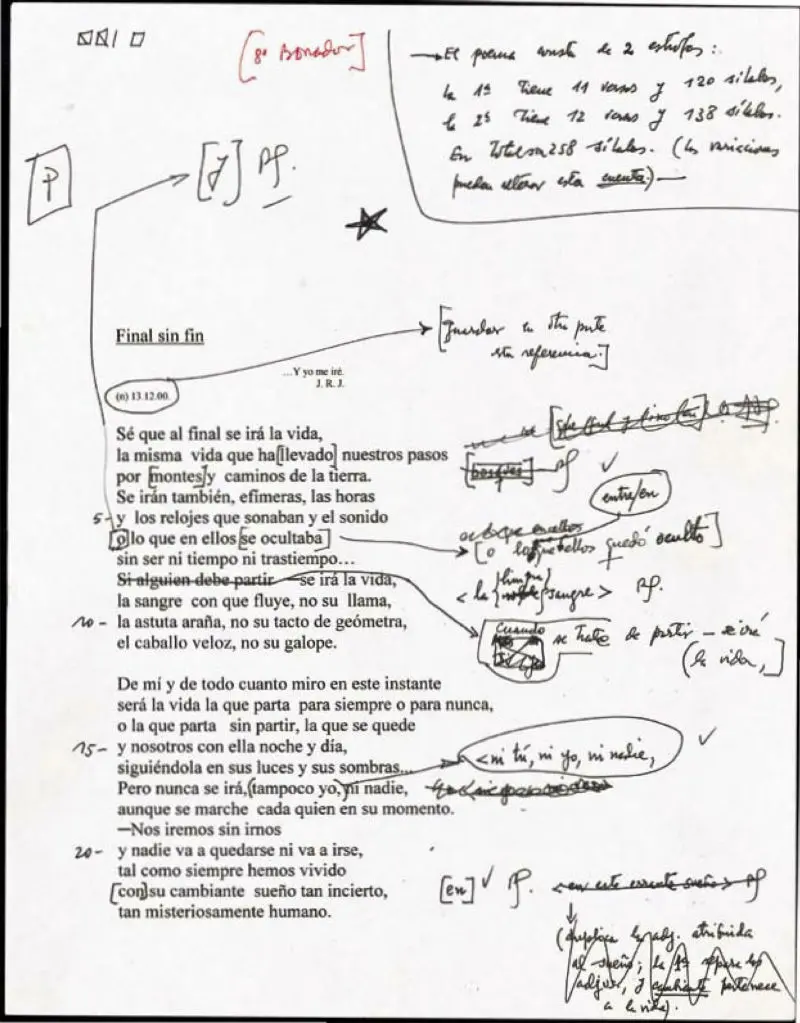 [8º Borrador]
→El poema consta de 2 estrofas:
la 1ª tiene 11 versos y 120 sílabas,
la 2ª tiene 12 versos y 138 sílabas.
En total son 258 sílabas. (Las variaciones
pueden alterar esta cuenta.)—
P
[y]
Final sin fin
[guardar en otra parte
esta referencia.]
…Y yo me iré.
J. R. J.
(n) 13.12.00.
Sé que al final se irá la vida,
la misma vida que ha[llevado] nuestros pasos
por [montes]y caminos de la tierra.
[bosques]
Se irán también, efímeras, las horas
entre/en
5- y los relojes que sonaban y el sonido
[o]lo que en ellos [se ocultaba]
quedó oculto]
sin ser ni tiempo ni trastiempo…
Si alguien debe partir —se irá la vida,
la sangre con que fluye, no su llama,
<la sangre>
10- la astuta araña, no su tacto de geómetra,
Cuando se trate de partir – se irá
(la vida,]
el caballo veloz, no su galope.
De mí y de todo cuanto miro en este instante
será la vida la que parta para siempre o para nunca,
o la que parta sin partir, la que se quede
15- y nosotros con ella noche y día,
<ni tú, ni yo, ni nadie,
siguiéndola en sus luces y sus sombras...
Pero nunca se irá,(tampoco yo, ni nadie,
aunque se marche cada quien en su momento.
—Nos iremos sin irnos
20- y nadie va a quedarse ni va a irse,
tal como siempre hemos vivido
[con]su cambiante sueño tan incierto,
[en]
<en este errante sueño>
tan misteriosamente humano.
adj. atribuida
al sueño; la 1ª
cambiante pertenece
a la vida).